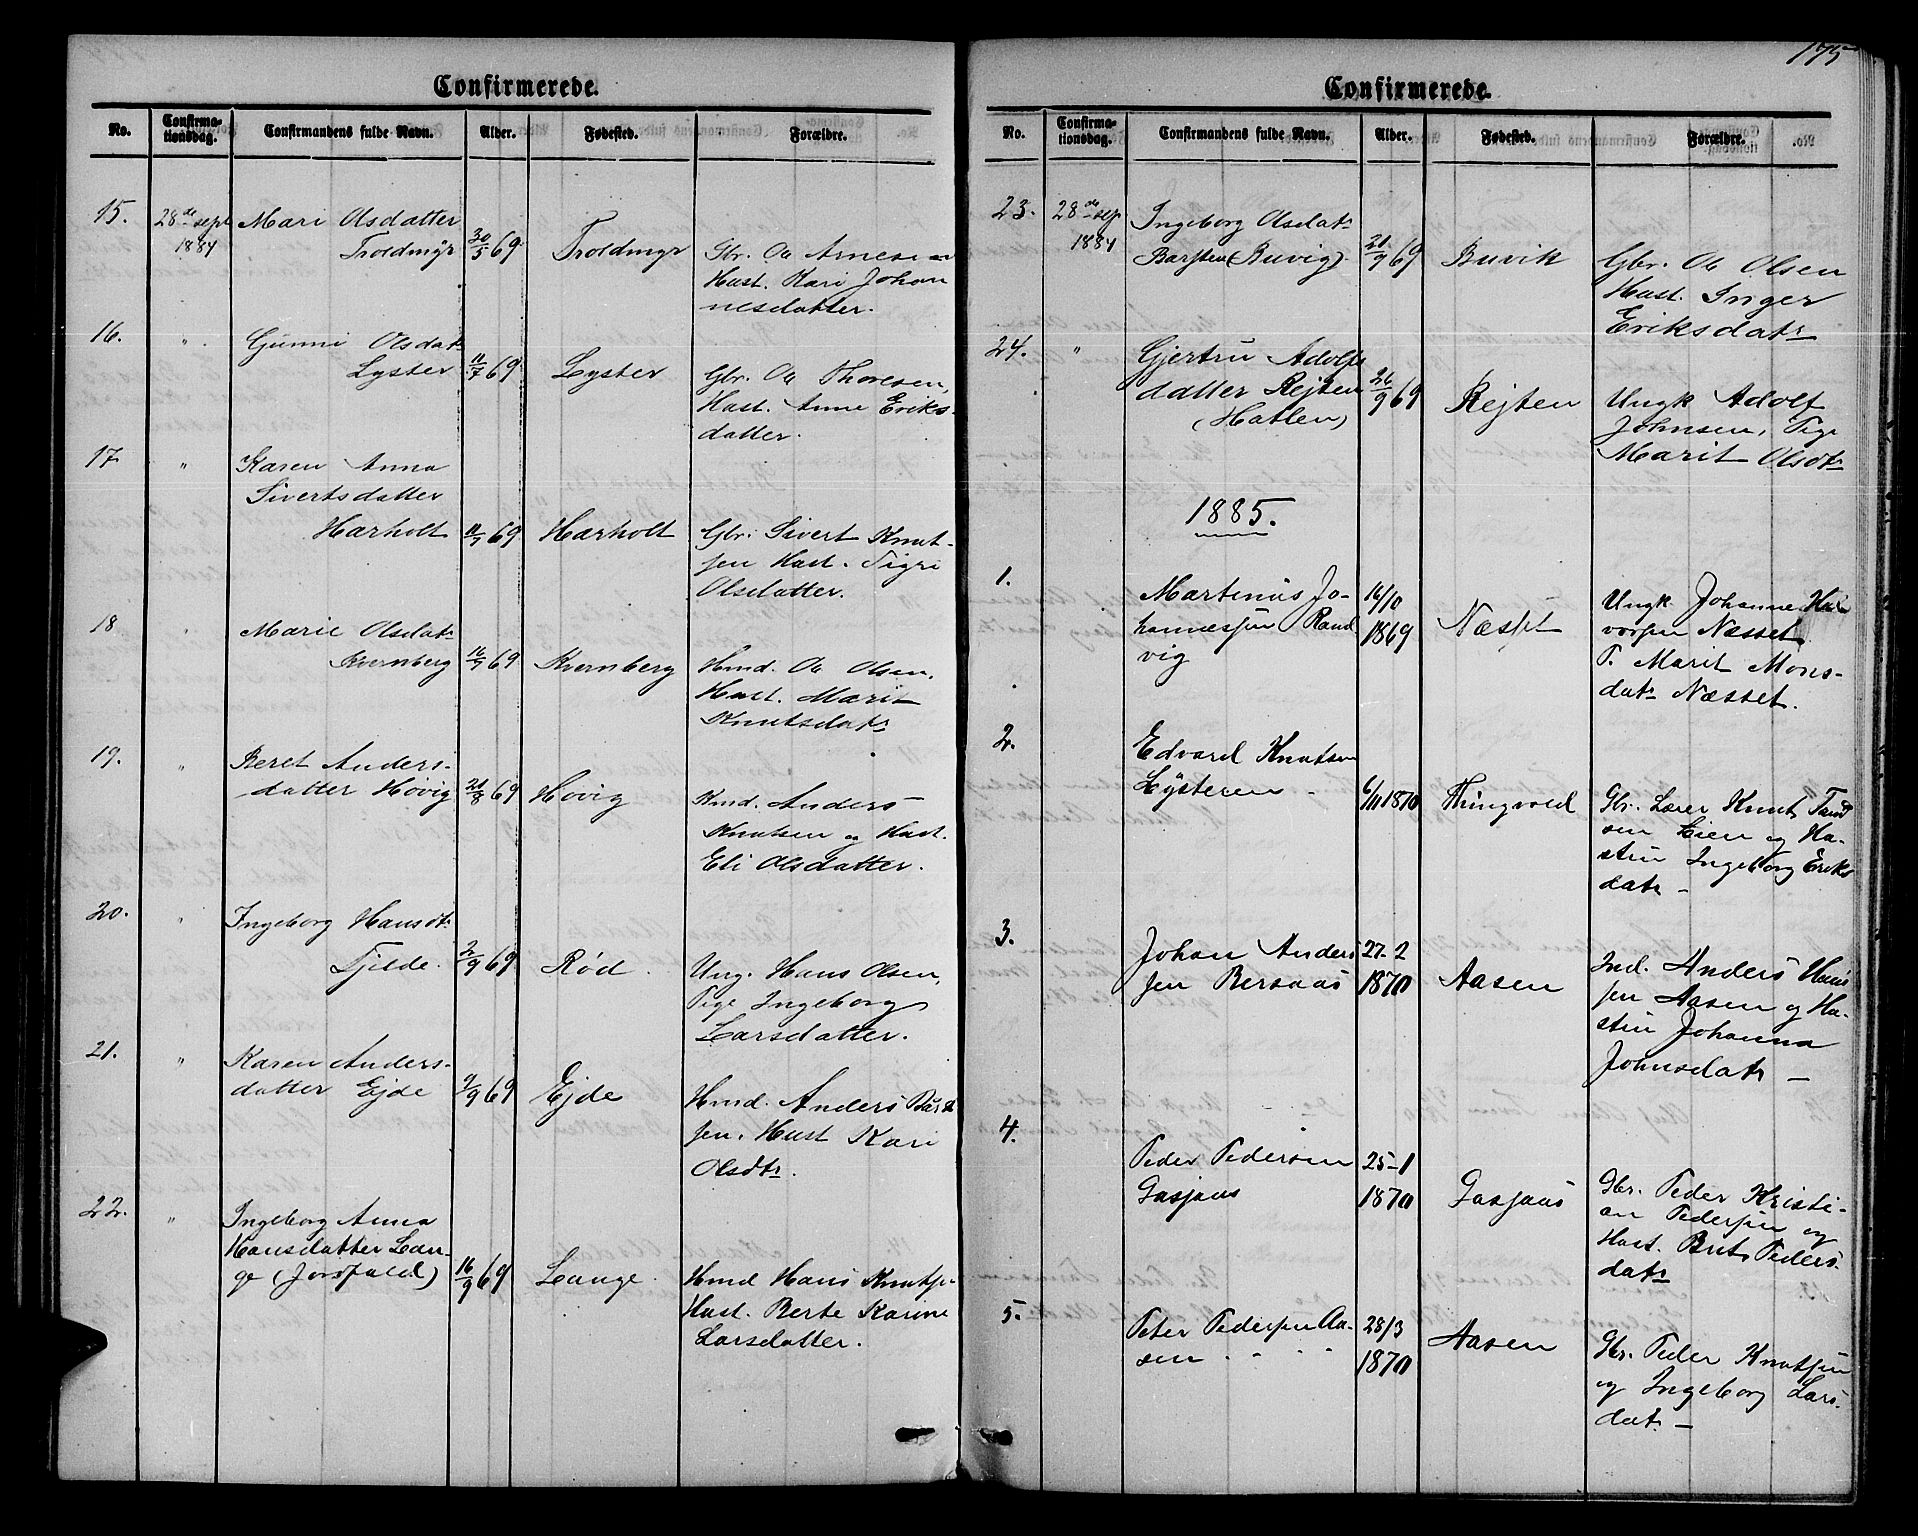 175
Confirmerede.
No. Confirmationsdag. Confirmandens fulde Navn. Alder. Fødested. Forældre.
15. 28de sept 1884 Mari Olsdatter
Troldmyr 30/5 69 Troldmyr Gbr. Ole Arnesen
Hust. Kari Johan
nesdatter.
16. " Gunni Olsdatr
Lyster 11/7 69 Lyster Gbr. Ole Thoresen,
Hust. Anne Eriks-
datter.
17 " Karen Anna
Sivertsdatter
Harholt 11/7 69 Harholt Gbr. Sivert Knut-
sen Hust. Sigri
Olsdatter.
18 " Marie Olsdatr
Kvernberg 16/7 69 Kvernberg Hmd. Ole Olsen,
Hust. Marit
Knutsdatr
19. " Beret Anders-
datter Høvig 21/8 69 Høvig Hmd. Anders
Knutsen og Hust.
Eli Olsdatter.
20. " Ingeborg Hansdtr
Tjelde. 2/9 69 Rød. Ung. Hans Olsen,
Pige Ingeborg
Larsdatter.
21. " Karen Anders-
datter Ejde 9/9 69 Ejde Hmd. Anders
sen, Hust Kari
Olsdtr.
22. " Ingeborg Anna
Hansdatter Lan-
ge 16/9 69 Lange. Hmd Hans Knuts.
Hust. Berte Karine
Larsdatter.
Confirmerede.
No. Confirmationsdag. Confirmandens fulde Navn. Alder. Fødested. Forældre.
23. 28de sep 1884 Ingeborg Olsdatr
Barsten (Buvig). 21/9 69 Buvik Gbr. Ole Olsen
Hust. Inger
Eriksdatr
24. " Gjertru Adolfs
datter Rejten
(Hatlen) 26/9 69 Rejten Ungk Adolf
Johnsen, Pige
Marit Olsdtr
1885.
1. Martinus Jo-
hannessen Rand
vig 14/10 1869 Næsset Ungk Johannes Hal
vorsen Næsset.
P. Marit Mons-
datr Næsset.
2. Edvard Knutsen
Lysteren 6/11 1870 Thingvold Gbr. Lærer Knut
sen Lien og Hu-
stru Ingeborg Eriks
datr -
3. Johan Anders
sen Bersaas 27-2 1870 Aasen Ind. Anders Hans
sen Aasen og Hu-
stru Johanna
Johnsdatr -
4. Peder Pedersen
Gasjaas 25-1 1870 Gasjaas Gbr. Peder Kristi-
an Pedersen og
Hust. Brit Peders-
datr
5. Peter Pedersen Aa-
sen 28/3 1870 Aasen Gbr. Peder Knutsen
og Ingeborg Lars-
datr -